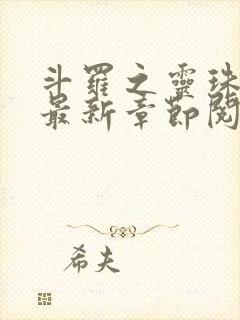 斗羅之靈珠
最新章節閱
希夫